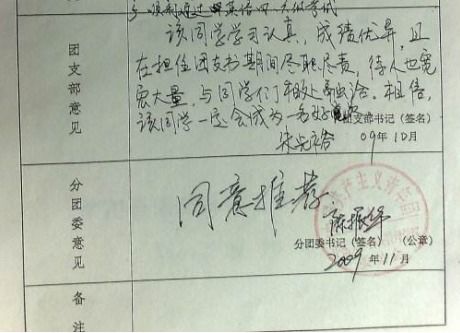 顺利通过英语四、六级考试
团支部意见
该同学学习认真,成绩优异,且
在担任团支书期间尽职尽责,待人也宽
宏大量,与同学们相处融洽。相信,
该同学一定会成为一名好
团支部书记(签名)
09年10月
分团委意见
同意推荐
分团委书记(签名) (公章)
2009年11月
备注